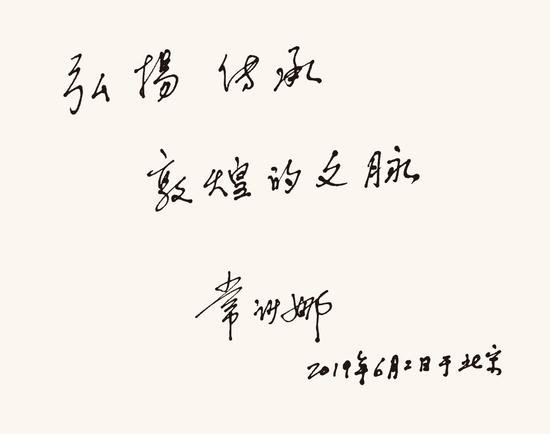 弘揚 传承
敦煌的文脉
常沙娜
2019年6月2日于北京